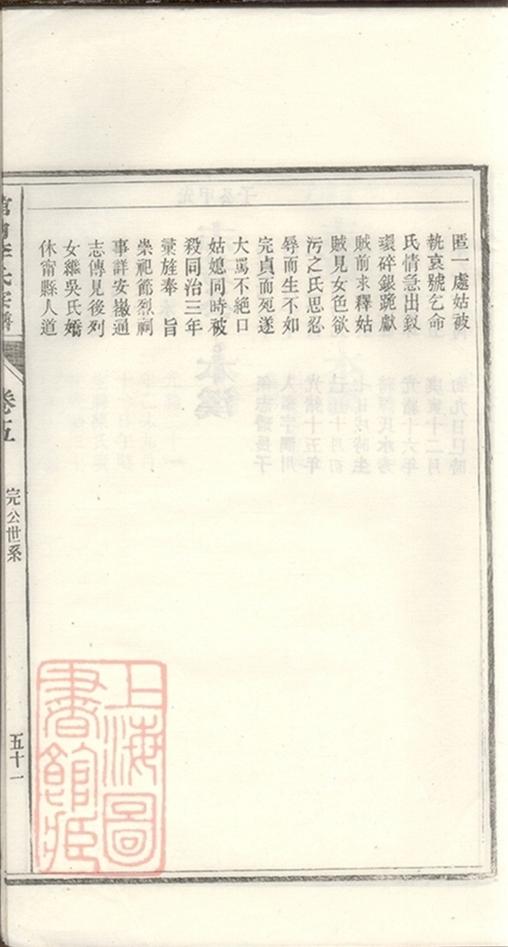 匿一處姑被
執哀號乞命
氏情急出釵
環碎銀跪獻
賊前求釋姑
賊見女色欲
污之氏思忍
辱而生不如
完貞而死遂
大罵不絕口
姑媳同時被
殺同治三年
彚旌奉 旨
崇祀節烈祠
事詳安徽通
志傳見後列
女繼吳氏嬌
休甯縣人道
李氏宗譜
卷五
完公世系
五十一
上海圖
書館藏